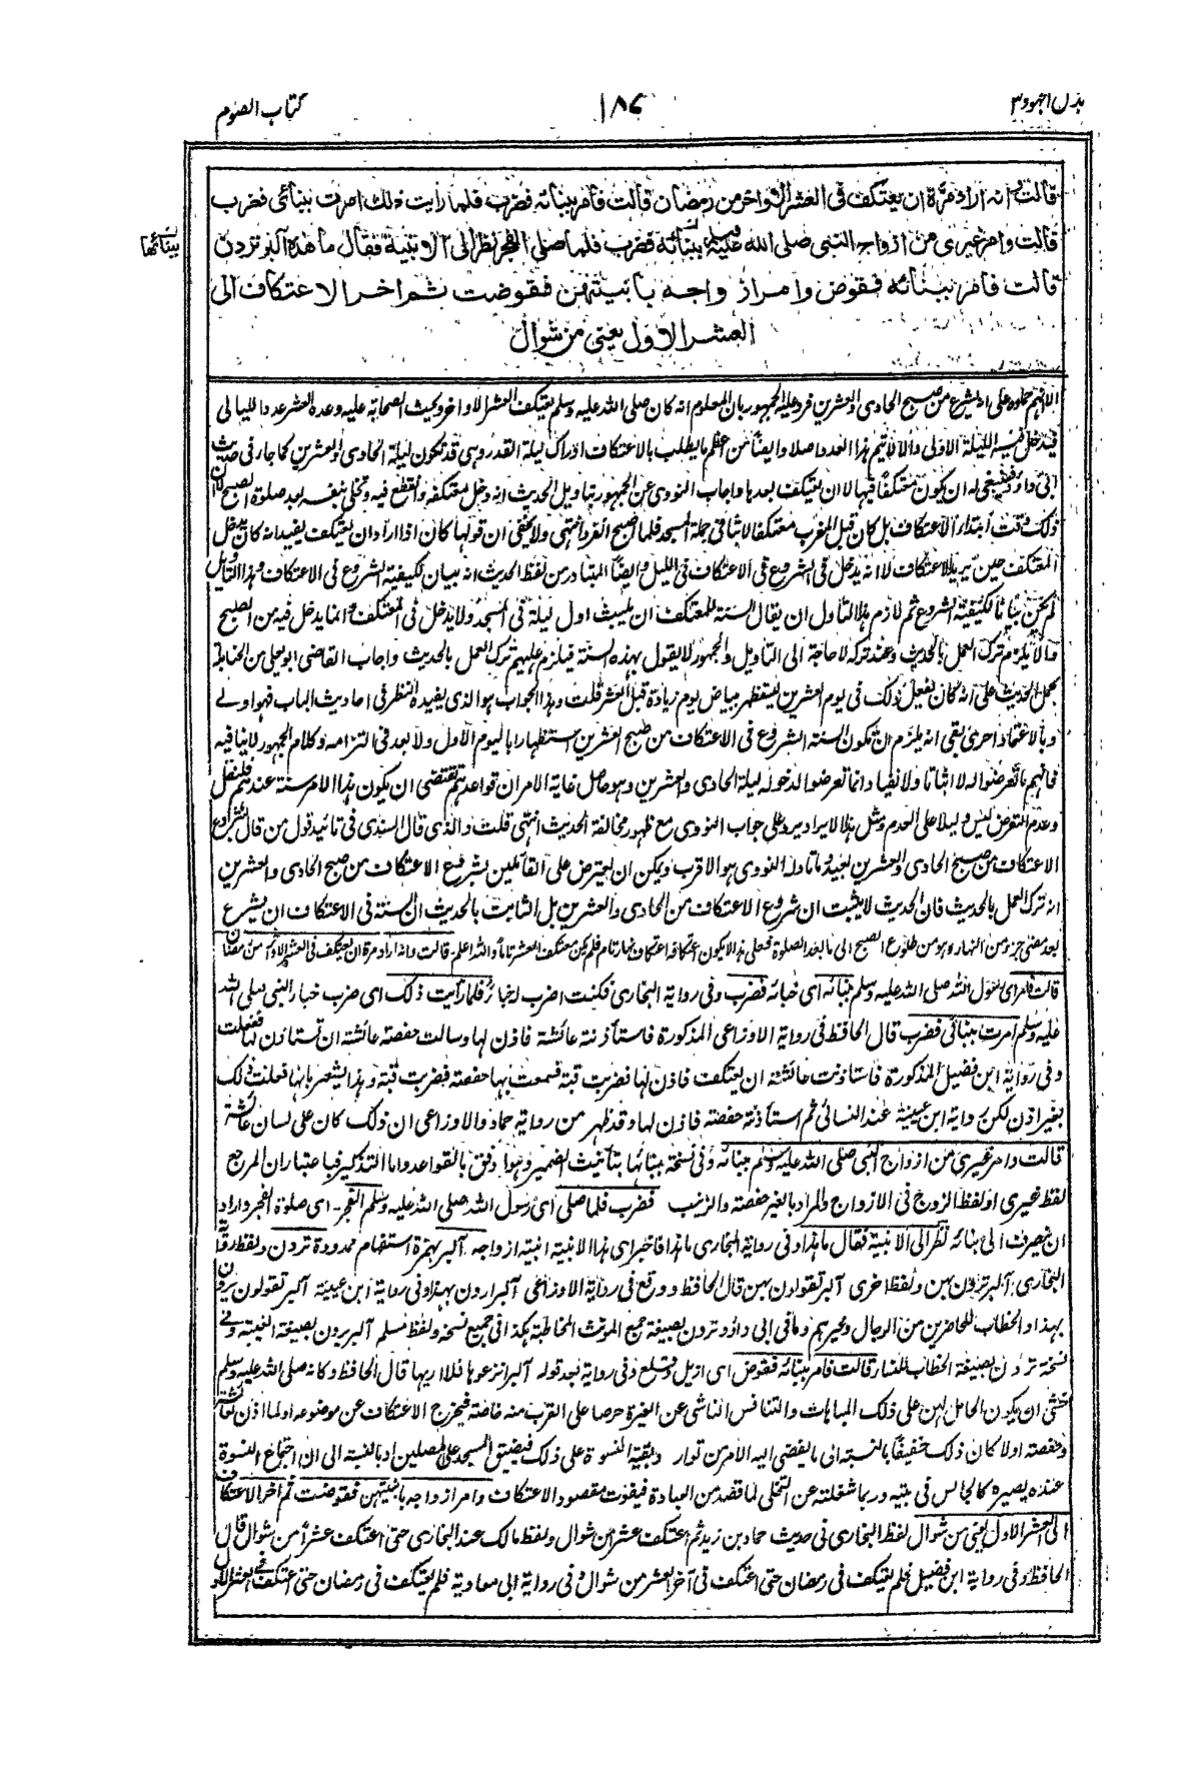 كتاب الصوم
١٨٧
بذل المجهود ٣
قالت وانه اراد مرة ان يعتكف فى العشر الاواخر من رمضان قالت فامر ببنائه فضرب فلما رايت ذلك امرت ببنائى فضرب
قالت وامر غيرى من ازواج النبى صلى الله عليه وسلم ببنائه فضرب فلما صلى الفجر نظر الى الابنية فقال ما هذه آلبر تردن
ببنائها
قالت فامر ببنائه فقوض وامر ازواجه بابنيتهن فقوضت ثم اخر الاعتكاف الى
العشر الاول يعنى من شوال
من صبح الحادى والعشرين فرد عليه الجمهور بان المعلوم انه كان صلى الله عليه وسلم يعتكف العشر الاواخر ويحث الصحابة عليه وعدد العشر عدد الليالى
فيدخل فيه الليلة الاولى والا لا يتم هذا العدد اصلا وايضا من اعظم ما يطلب بالاعتكاف ادراك ليلة القدر وهى قد تكون ليلة الحادى والعشرين كما جاء فى حديث
ابى داؤد فينبغى له ان يكون معتكفا فيها لا ان يعتكف بعدها واجاب النووى عن الجمهور بتاويل الحديث انه دخل معتكفه وانقطع فيه وتخلى بنفسه بعد صلوة الصبح لا ان
ذلك وقت ابتداء الاعتكاف بل كان قبل المغرب معتكفا لابثا فى جملة المسجد فلما صلى الصبح انفرد انتهى ولا يخفى ان قولها كان اذا اراد ان يعتكف يفيد انه كان يدخل
المعتكف حين يريد الاعتكاف لا انه يدخل فى الشروع فى الاعتكاف فى الليل وايضا المتبادر من لفظ الحديث انه بيان لكيفية الشروع فى الاعتكاف وهذا التاويل
لم يكن بيانا لكيفية الشروع ثم لازم هذا التاويل ان يقال السنة للمعتكف ان يلبث اول ليلة فى المسجد ولا يدخل فى المعتكف وانما يدخل فيه من الصبح
والا يلزم ترك العمل بالحديث وعند تركه لا حاجة الى التاويل والجمهور لا يقول بهذه السنة فيلزم عليهم ترك العمل بالحديث واجاب القاضى ابو يعلى من الحنابلة
بحمل الحديث على انه كان يفعل ذلك فى يوم العشرين ليستظهر ببياض يوم زيادة قبل العشر قلت وهذا الجواب هو الذى يفيده النظر فى احاديث الباب فهو اولى
وبالاعتماد احرى بقى انه يلزم ان تكون السنة الشروع فى الاعتكاف من صبح العشرين استظهارا باليوم الاول ولا بعد فى التزامه وكلام الجمهور لا ينافيه
فانهم ما تعرضوا له لا اثباتا ولا نفيا وانما تعرضوا لدخول ليلة الحادى والعشرين وهو حاصل غاية الامر ان قواعدهم تقتضى ان يكون هذا الامر سنة عندهم فلنقل
وعدم التعرض ليس دليلا على العدم ومثل هذا الايراد يرد على جواب النووى مع ظهور مخالفة الحديث انتهى قلت والذى قال السندى فى تائيد قول من قال بشروع
الاعتكاف من صبح الحادى والعشرين بعيد وما تاوله النووى هو الاقرب ويمكن ان يعترض على القائلين بشروع الاعتكاف من صبح الحادى والعشرين
انه ترك العمل بالحديث فان الحديث لا يثبت ان شروع الاعتكاف من الحادى والعشرين بل الثابت بالحديث ان السنة فى الاعتكاف ان يشرع
بعد مضى جزء من النهار وهو من طلوع الصبح الى ما بعد الصلوة فعلى هذا لا يكون اعتكافه اعتكاف نهار تام فلم يكن معتكف العشر تاما والله اعلم قالت وانه اراد مرة ان يعتكف فى العشر الاواخر من رمضان
قالت فامر اى رسول الله صلى الله عليه وسلم ببنائه اى خبائه فضرب وفى رواية البخارى فكنت اضرب له خباء فلما رأيت ذلك اى ضرب خباء النبى صلى الله
عليه وسلم امرت ببنائى فضرب قال الحافظ فى رواية الاوزاعى المذكورة فاستأذنته عائشة فاذن لها وسالت حفصة عائشة ان تستاذن لها ففعلت
وفى رواية ابن فضيل المذكورة فاستاذنت عائشة ان يعتكف فاذن لها فضربت قبة فسمعت بها حفصة فضربت قبة وهذا يشعر بانها فعلت ذلك
بغير اذن لكن رواية ابن عيينة عند النسائى ثم استأذنته حفصة فاذن لها وقد ظهر من رواية حماد والاوزاعى ان ذلك كان على لسان عائشة
قالت وامر غيرى من ازواج النبى صلى الله عليه وسلم ببنائه وفى نسخة ببنائها بتأنيث الضمير وهو اوفق بالقواعد واما التذكير فباعتبار ان المرجع
لفظ غيرى او لفظ الزوج فى الازواج والمراد بالغير حفصة والزينب فضرب فلما صلى اى رسول الله صلى الله عليه وسلم الفجر اى صلوة الفجر واراد
ان ينصرف الى بنائه نظر الى الابنية فقال ما هذا وفى رواية البخارى ما هذا فاخبر اى هذا الابنية ابنية ازواجه آلبر بهمزة استفهام ممدودة تردن ولفظ رواية
البخارى آلبر ترون بهن ولفظ اخرى آلبر تقولون بهن قال الحافظ ووقع فى رواية الاوزاعى آلبر اردن بهذا وفى رواية ابن عيينة آلبر تقولون يردن
بهذا والخطاب للحاضرين من الرجال وغيرهم وما فى ابى داؤد تردن بصيغة جمع المونث المخاطبة هكذا فى جميع نسخه ولفظ مسلم آلبر يردن بصيغة الغيبة وفى
نسخة تردن بصيغة الخطاب للنساء قالت فامر ببنائه فقوض اى ازيل وقلع وفى رواية بعد قوله آلبر انزعوها فلا اريها قال الحافظ وكانه صلى الله عليه وسلم
خشى ان يكون الحامل لهن على ذلك المباهات والتنافس الناشى عن الغيرة حرصا على القرب منه خاصة فيخرج الاعتكاف عن موضوعه او لما اذن لعائشة
وحفصة اولا كان ذلك خفيفا بالنسبة الى ما يفضى اليه الامر من توارد بقية النسوة على ذلك فيضيق المسجد على المصلين او بالنسبة الى ان اجتماع النسوة
عنده يصيره كالجالس فى بيته وربما شغلته عن التخلى لما قصد من العبادة فيفوت مقصود الاعتكاف وامر ازواجه بابنيتهن فقوضت ثم اخر الاعتكاف
الى العشر الاول يعنى من شوال لفظ البخارى فى حديث حماد بن زيد ثم اعتكف عشرا من شوال ولفظ مالك عند البخارى حتى اعتكف عشرا من شوال قال
الحافظ وفى رواية ابن فضيل فلم يعتكف فى رمضان حتى اعتكف فى آخر العشر من شوال وفى رواية ابى معاوية فلم يعتكف فى رمضان حتى اعتكف فى العشر الاول